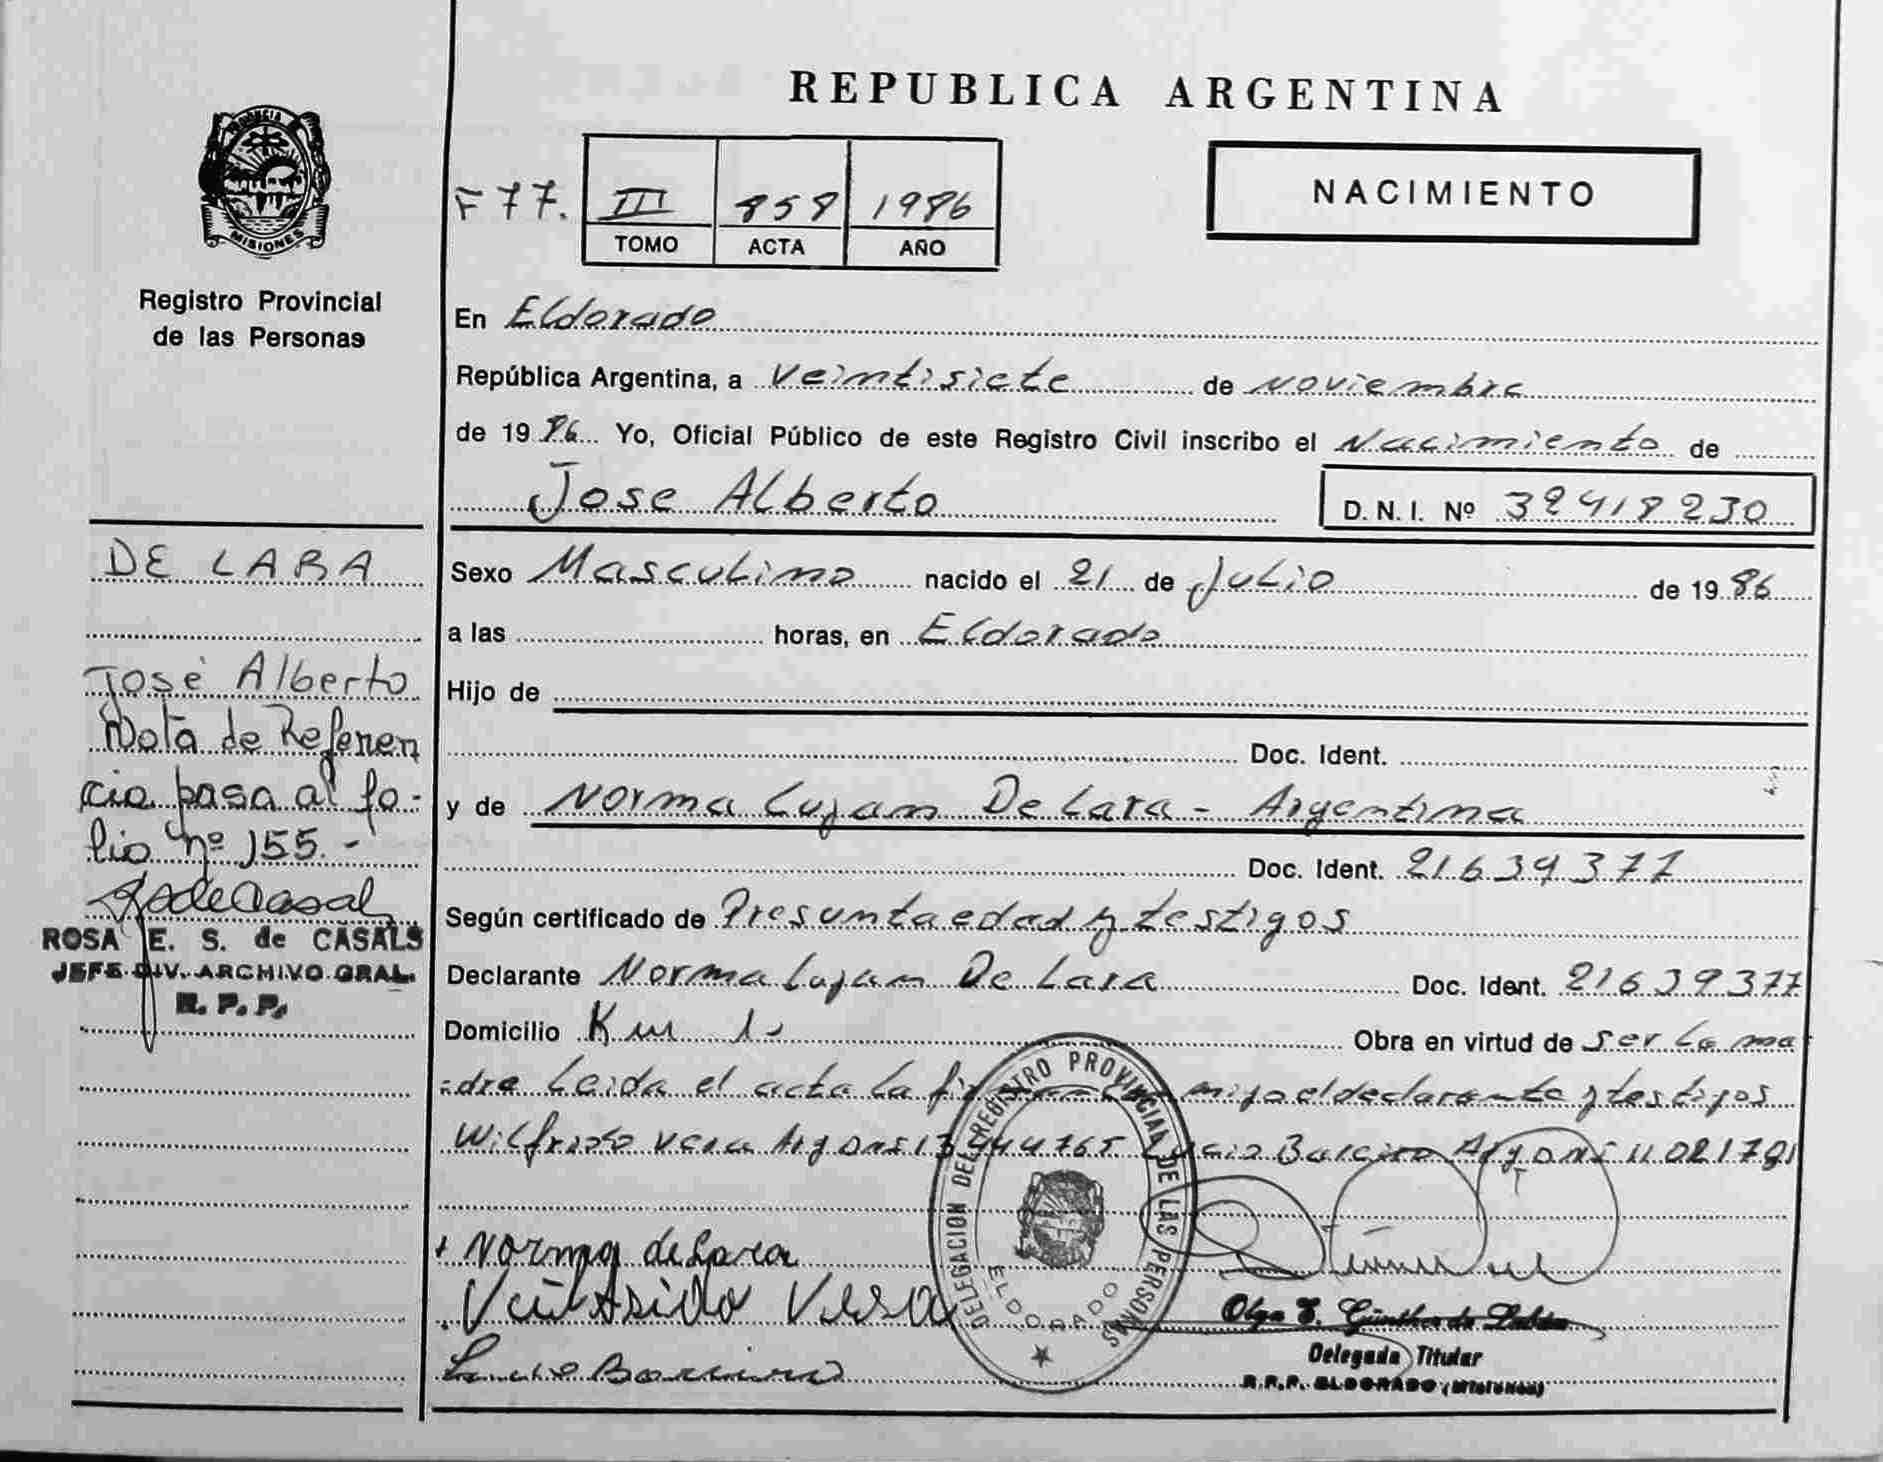 REPUBLICA ARGENTINA
PROVINCIA
MISIONES
Registro Provincial
de las Personas
F 77.
III 858 1986
TOMO ACTA AÑO
NACIMIENTO
En Eldorado
República Argentina, a veintisiete de noviembre
de 19 86 Yo, Oficial Público de este Registro Civil inscribo el Nacimiento de
Jose Alberto D. N. I. Nº 32418230
DE LARA
José Alberto
Nota de Referen
cia pasa al fo-
lio nº 155.-
ROSA E. S. de CASALS
JEFE DIV. ARCHIVO GRAL.
R. P. P.
Sexo Masculino nacido el 21 de Julio de 19 86
a las horas, en Eldorado
Hijo de
Doc. Ident.
y de Norma Lujan De Lara - Argentina
Doc. Ident. 21639377
Según certificado de Presunta edad y testigos
Declarante Norma Lujan De Lara Doc. Ident. 21639377
Domicilio Km 10 Obra en virtud de ser la ma
dre Leida el acta la conmigo el declarante y testigos
Wilfrido Vera Arg DNI 13444765 Lucio Barciro Arg DNI 11021781
Norma de Lara
Vera
DELEGACION DEL REGISTRO PROVINCIAL DE LAS PERSONAS
ELDORADO
Olga E. Günther de
Delegada Titular
R.P.P. ELDORADO (Misiones)